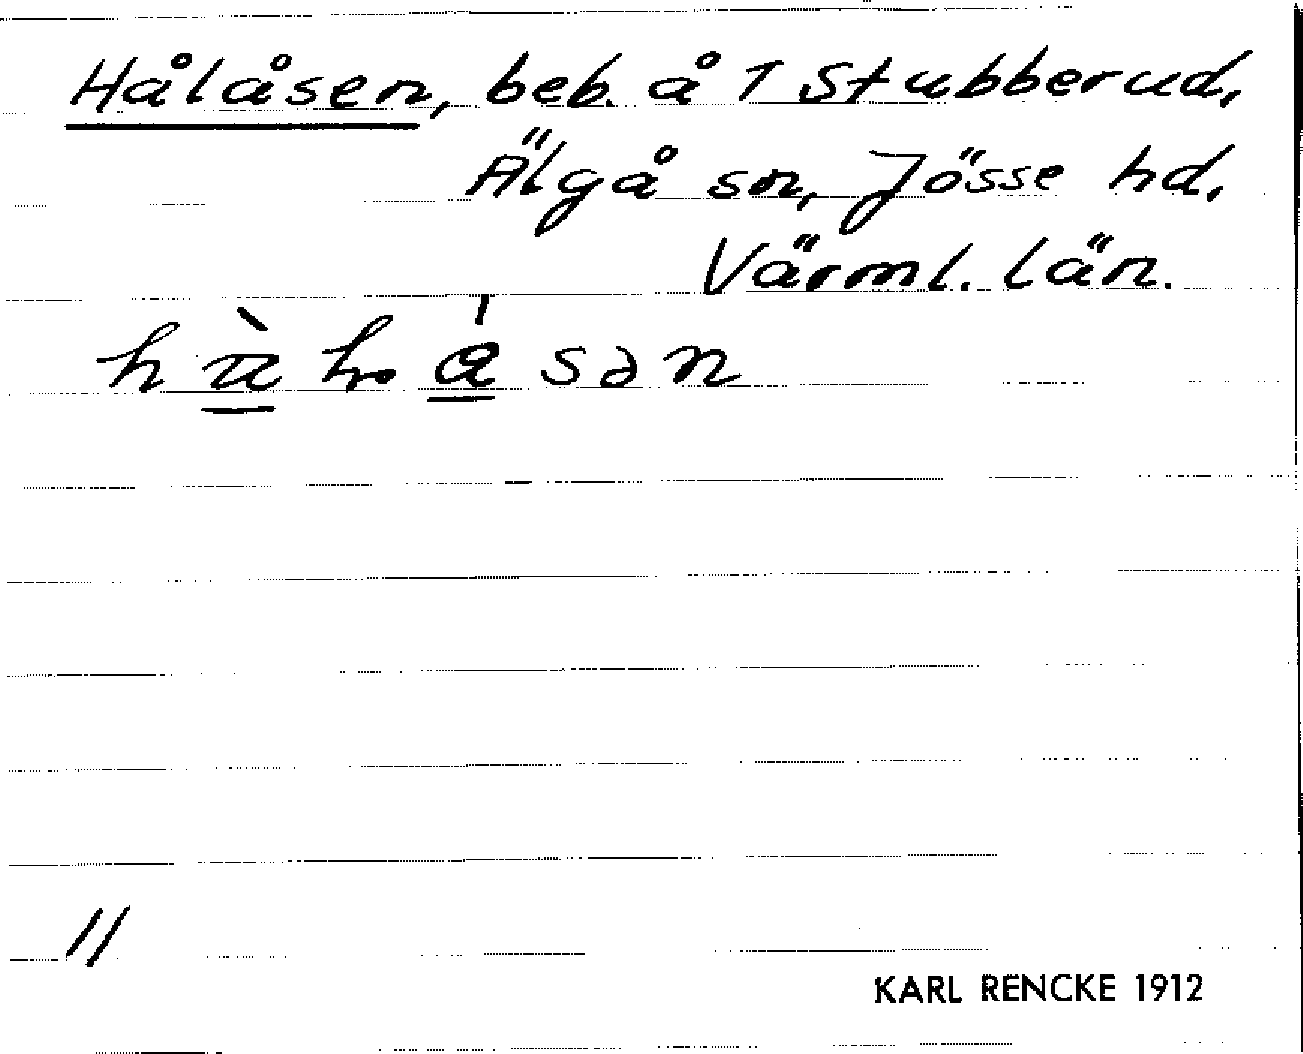 Hålåsen, beb. å 1 Stubberud,
Älgå sn, Jösse hd,
Värml. län.
11
KARL RENCKE 1912